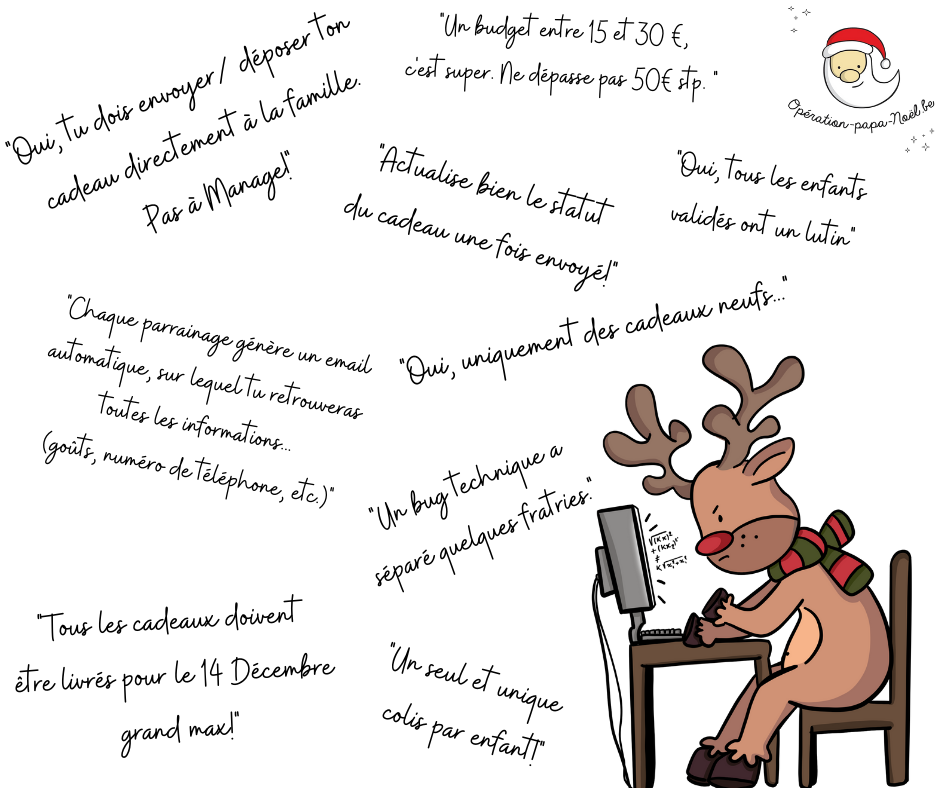 "Oui, tu dois envoyer/ déposer ton
cadeau directement à la famille.
Pas à Manage!"
"Un budget entre 15 et 30 €,
c'est super. Ne dépasse pas 50€ stp. "
Opération-papa-Noël.be
"Actualise bien le statut
du cadeau une fois envoyé!"
"Oui, tous les enfants
validés ont un lutin"
"Chaque parrainage génère un email
automatique, sur lequel tu retrouveras
toutes les informations...
(goûts, numéro de téléphone, etc.)"
"Oui, uniquement des cadeaux neufs..."
"Un bug technique a
séparé quelques fratries."
"Tous les cadeaux doivent
être livrés pour le 14 Décembre
grand max!"
"Un seul et unique
colis par enfant!"